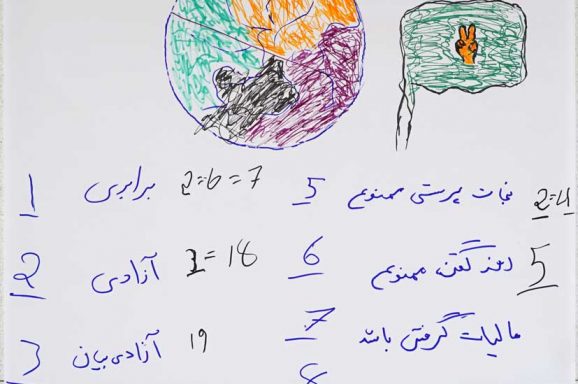 1 برابری 2=6=7
2 آزادی 1=18
3 آزادی بیان 19
5 نجات پرستی ممنوع 2=4
6 گفتن ممنوع 5
7 مالیات گرفتن باشد
8